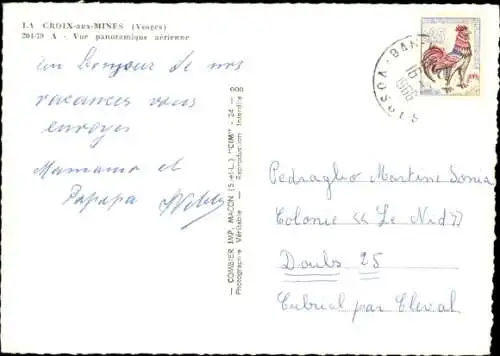 LA CROIX-aux-MINES (Vosges)
204-79 A - Vue panoramique aérienne
un bonjour de nos
vacances vous
envoyer
Mamama et
Papapa
— COMBIER IMP. MACON (S.-&-L.) "CIM" - 24 —
Photographie Véritable - Reproduction Interdite
BAN
VOSGES
1966
Pedraglio Martine Sonia
Colonie « Le Nid »
Doubs 25
Cubrial par Cleval